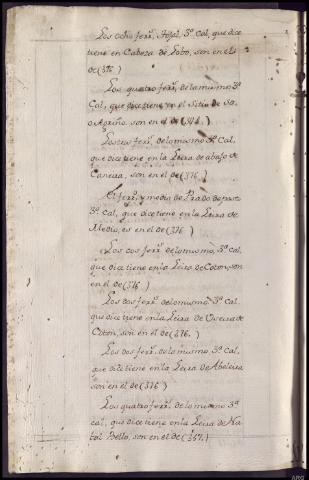 Los ocho ferr.s Tojal 3.a Cal, que dice
tiene en Cabeza de Lobo, son en el
de (376)
Los quatro ferr.s de la misma 3.a
Cal, que dice tiene en el Sitio de
son en el de
Los tres ferr.s de lo mismo 3.a Cal,
que dice tiene en la Leira de abajo de
Caneira, son en el de (376.)
El ferr.o y medio de Prado de pasto
3.a Cal, que dice tiene en la Leira de
Medio, es en el de (376.)
Los dos ferr.s de lo mismo 3.a Cal,
que dice tiene en la Leira de Coton, son
en el de (376.)
Los dos ferr.s de lo mismo 3.a Cal,
que dice tiene en la Leira de de
Coton, son en el de (376.)
Los dos ferr.s de lo mismo 3.a Cal,
que dice tiene en la Leira de Abeleira
son en el de (376)
Los quatro ferr.s de lo mismo 3.a
Cal, que dice tiene en la Leira de
Bello, son en el de (367.)